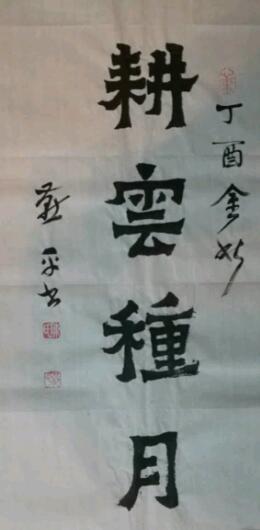 丁酉金秋
耕雲種月
平书